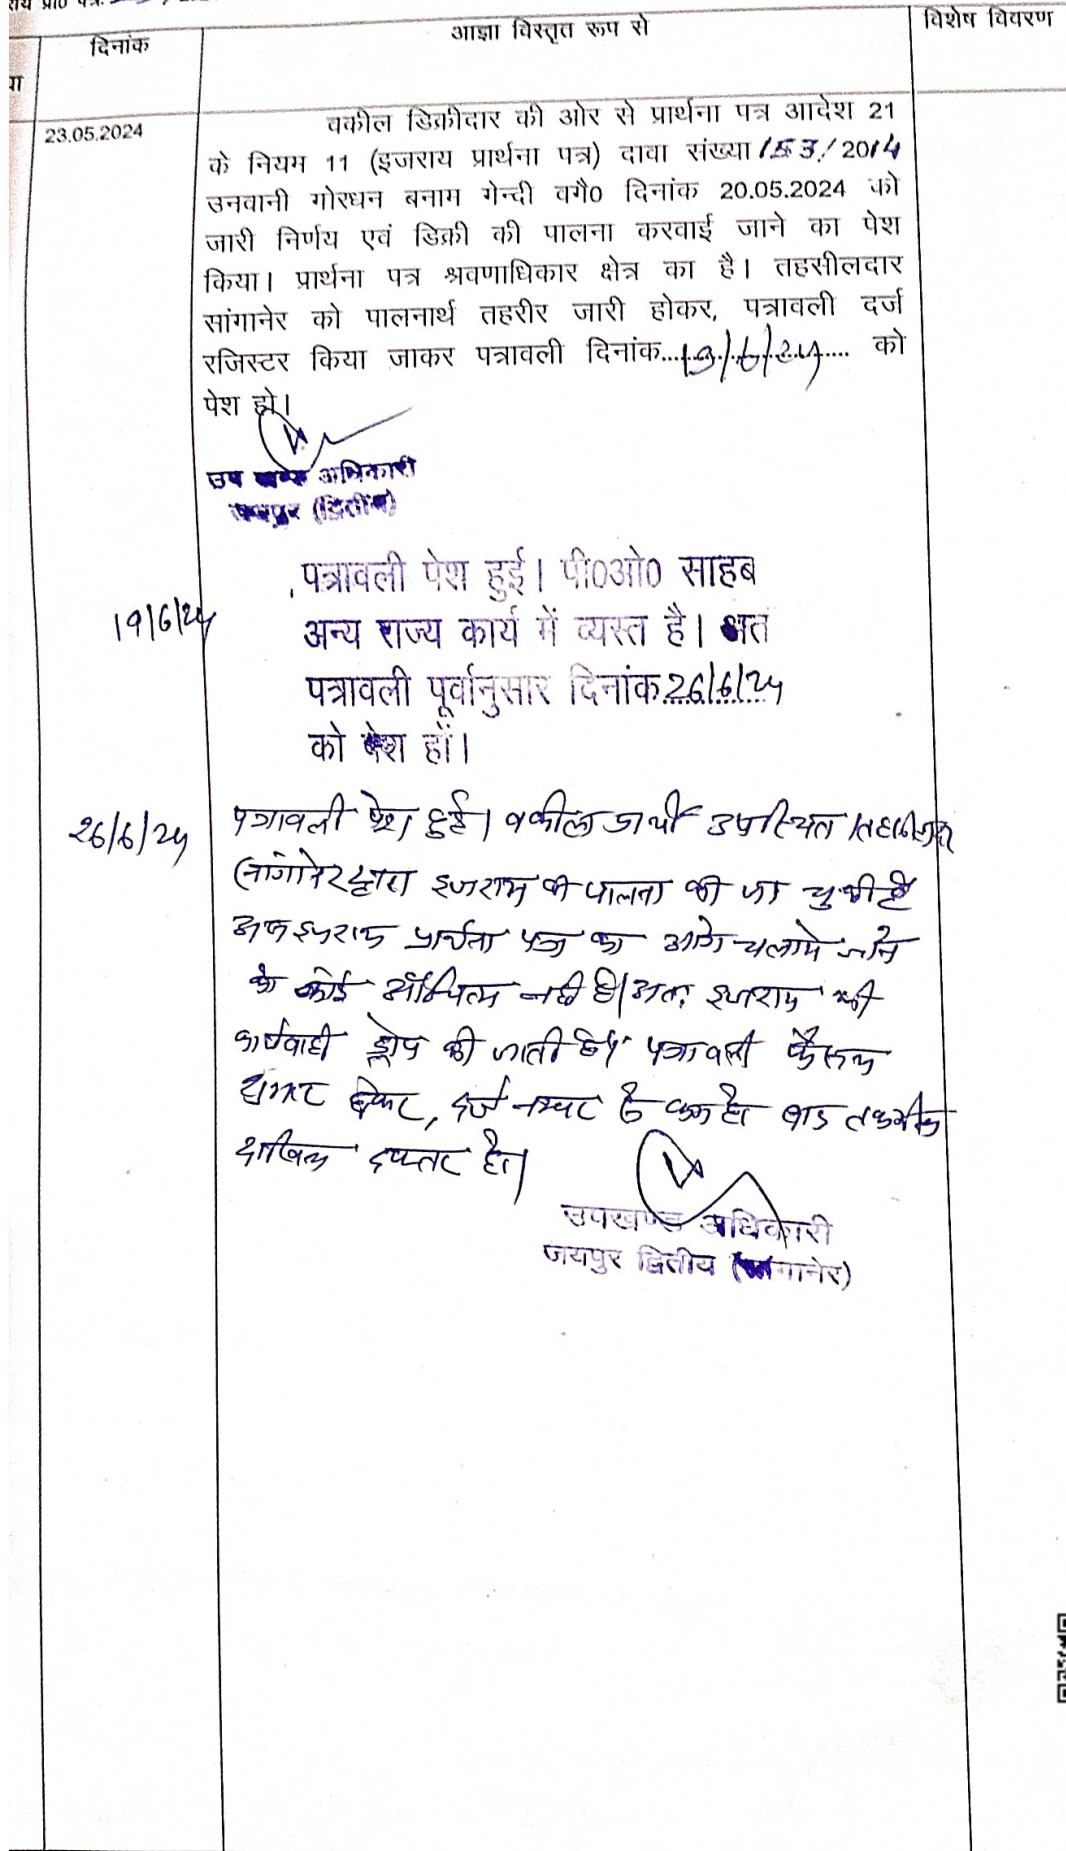 दिनांक
आज्ञा विस्तृत रूप से
विशेष विवरण
23.05.2024
वकील डिक्रीदार की ओर से प्रार्थना पत्र आदेश 21
के नियम 11 (इजराय प्रार्थना पत्र) दावा संख्या 153/2014
उनवानी गोरधन बनाम गेन्दी वगै0 दिनांक 20.05.2024 को
जारी निर्णय एवं डिक्री की पालना करवाई जाने का पेश
किया। प्रार्थना पत्र श्रवणाधिकार क्षेत्र का है। तहसीलदार
सांगानेर को पालनार्थ तहरीर जारी होकर, पत्रावली दर्ज
रजिस्टर किया जाकर पत्रावली दिनांक...19/6/24.... को
पेश हो।
उप खण्ड अधिकारी
जयपुर (द्वितीय)
19/6/24
पत्रावली पेश हुई। पी0ओ0 साहब
अन्य राज्य कार्य में व्यस्त है। अत
पत्रावली पूर्वानुसार दिनांक 26/6/24
को पेश हों।
26/6/24
पत्रावली पेश हुई। वकील प्रार्थी उपस्थित। तहसीलदार
सांगानेर द्वारा इजराय की पालना की जा चुकी है
इजराय प्रार्थना पत्र को आगे चलाये जाने
के कोई औचित्य नहीं है। अतः इजराय की
कार्यवाही ड्रोप की जाती है। पत्रावली फैसल
शुमार होकर, दर्ज नम्बर से कम हो बाद तकमील
दाखिल दफ्तर हो।
उपखण्ड अधिकारी
जयपुर द्वितीय (सांगानेर)